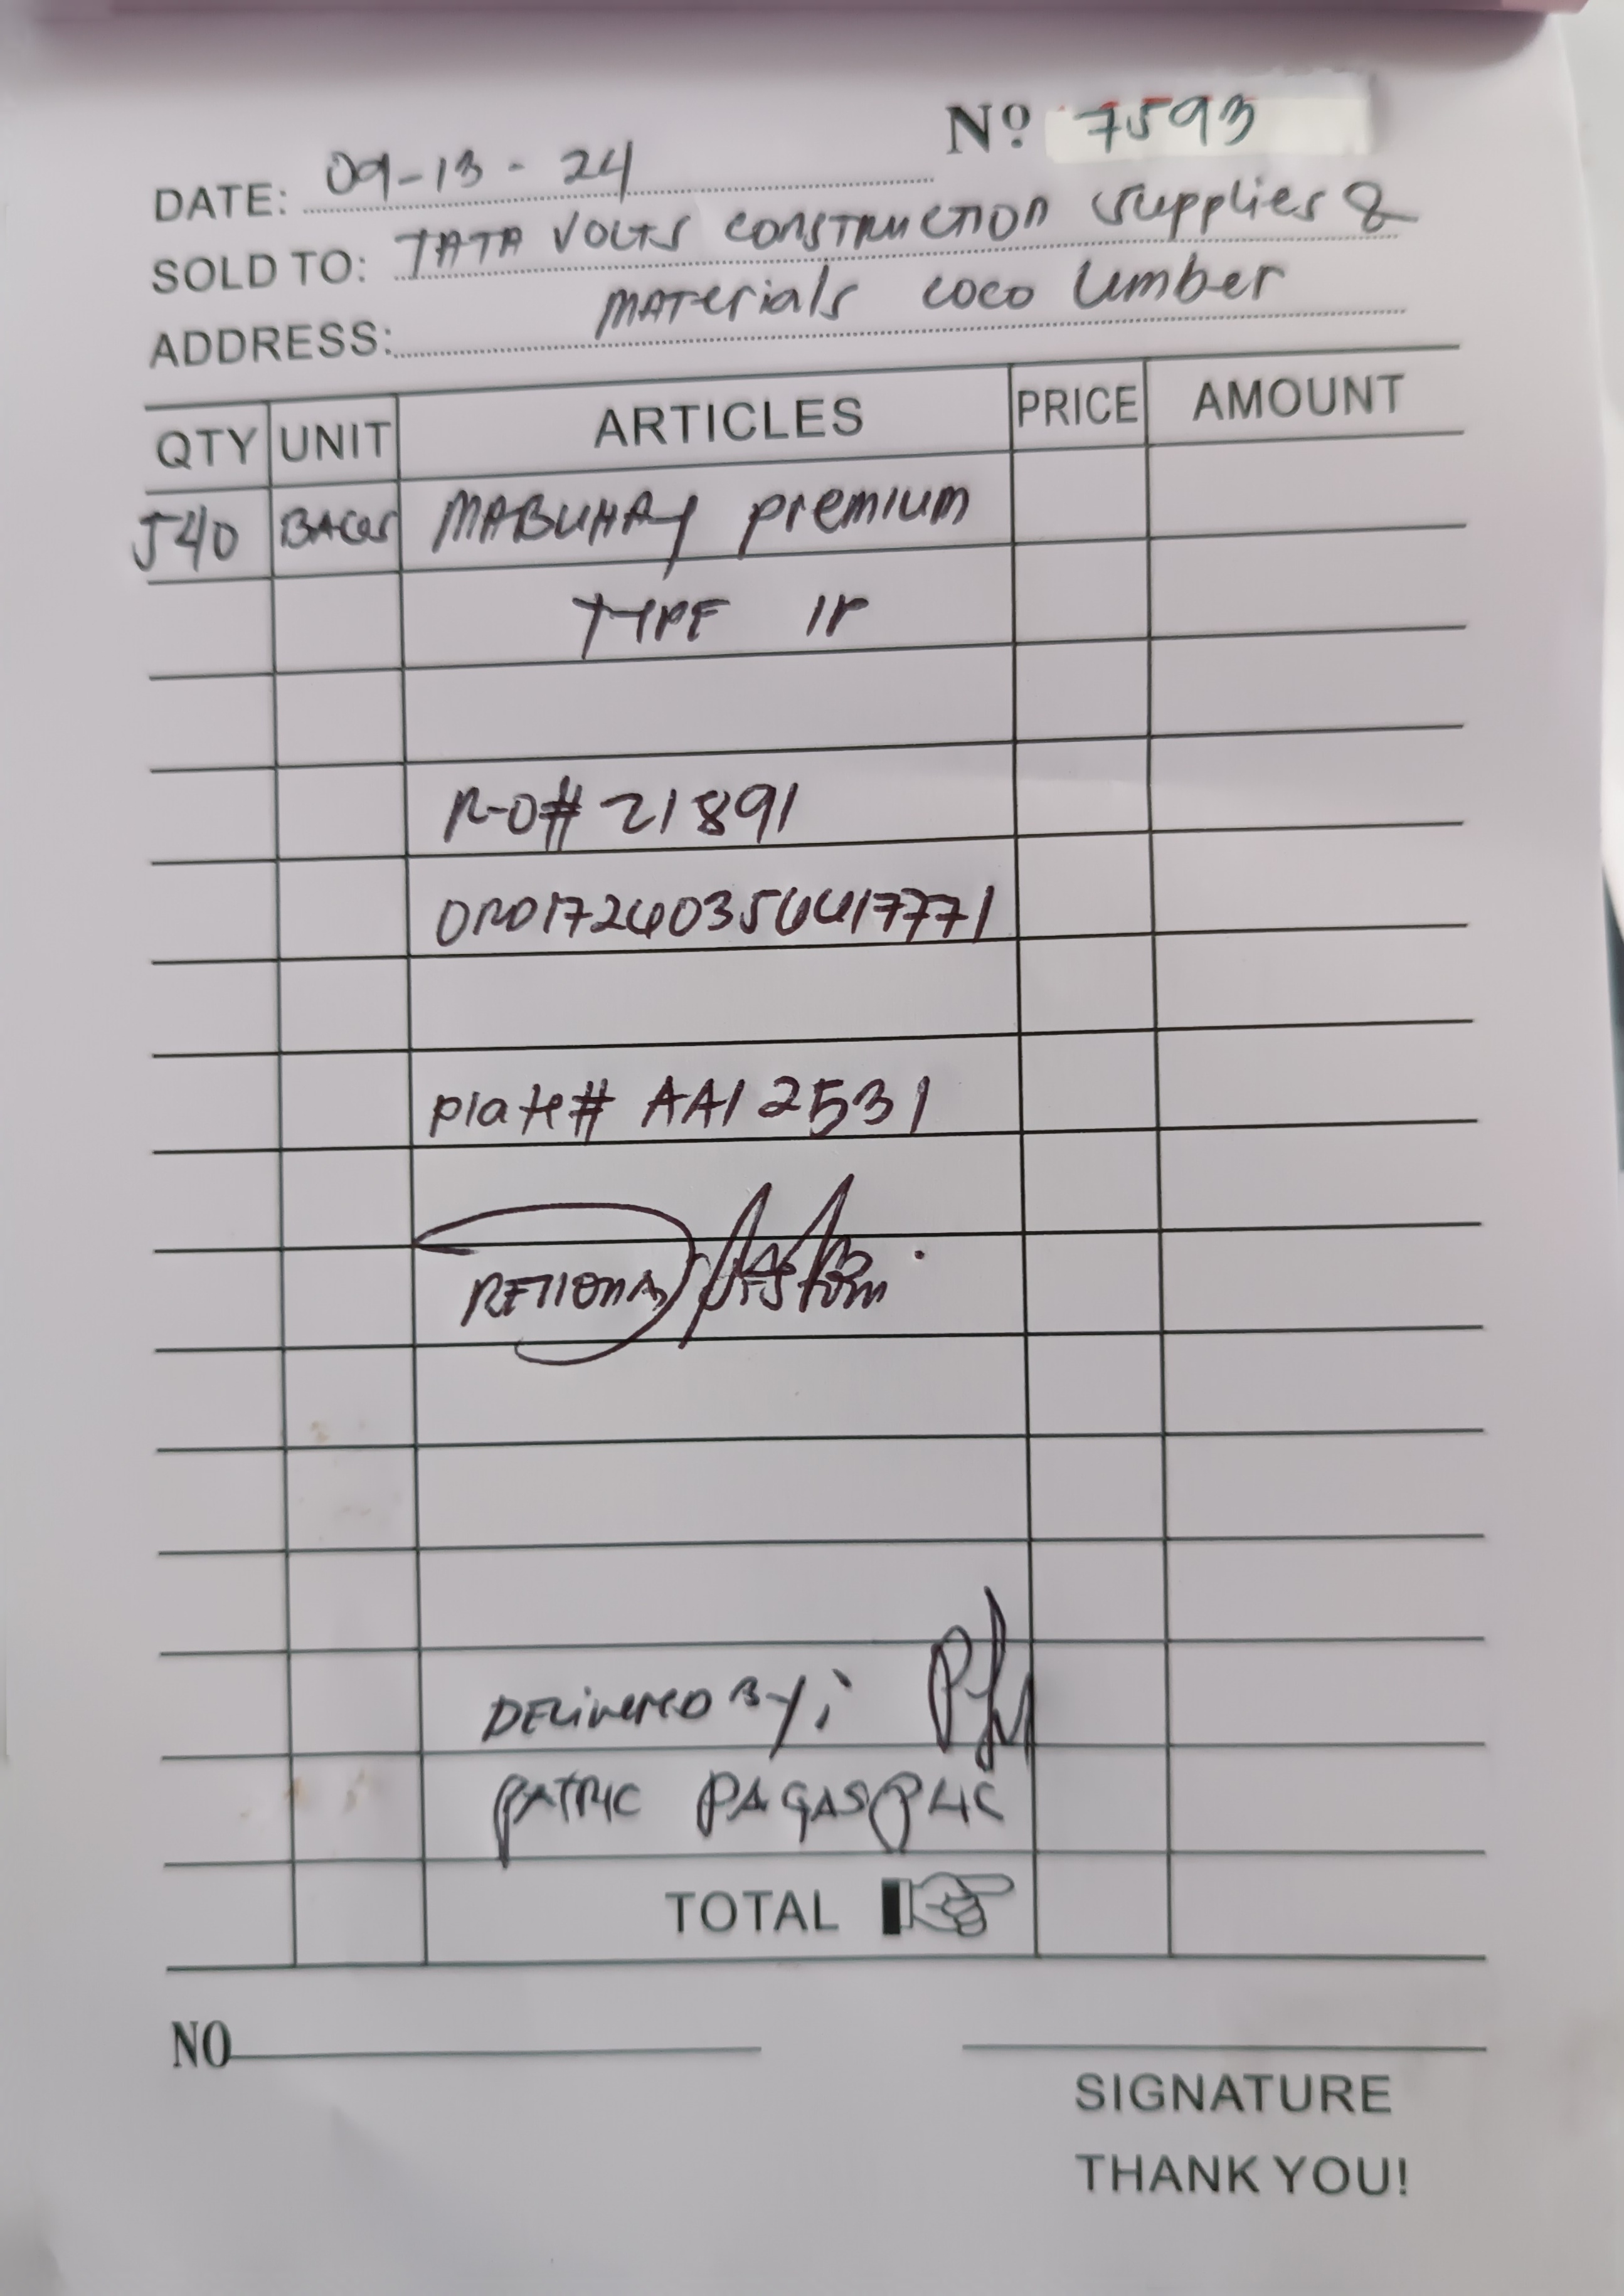 Nº 7593
DATE: 09-13-24
SOLD TO: TATA VOLTS CONSTRUCTION Supplies &
ADDRESS: MATerials coco lumber
QTY UNIT ARTICLES PRICE AMOUNT
540 BAGS MABUHAY premium
TYPE 1P
R-O# 21891
plate# AAI 2531
DELIVERED BY:
PATRIC PAGASPAS
TOTAL
NO
SIGNATURE
THANK YOU!